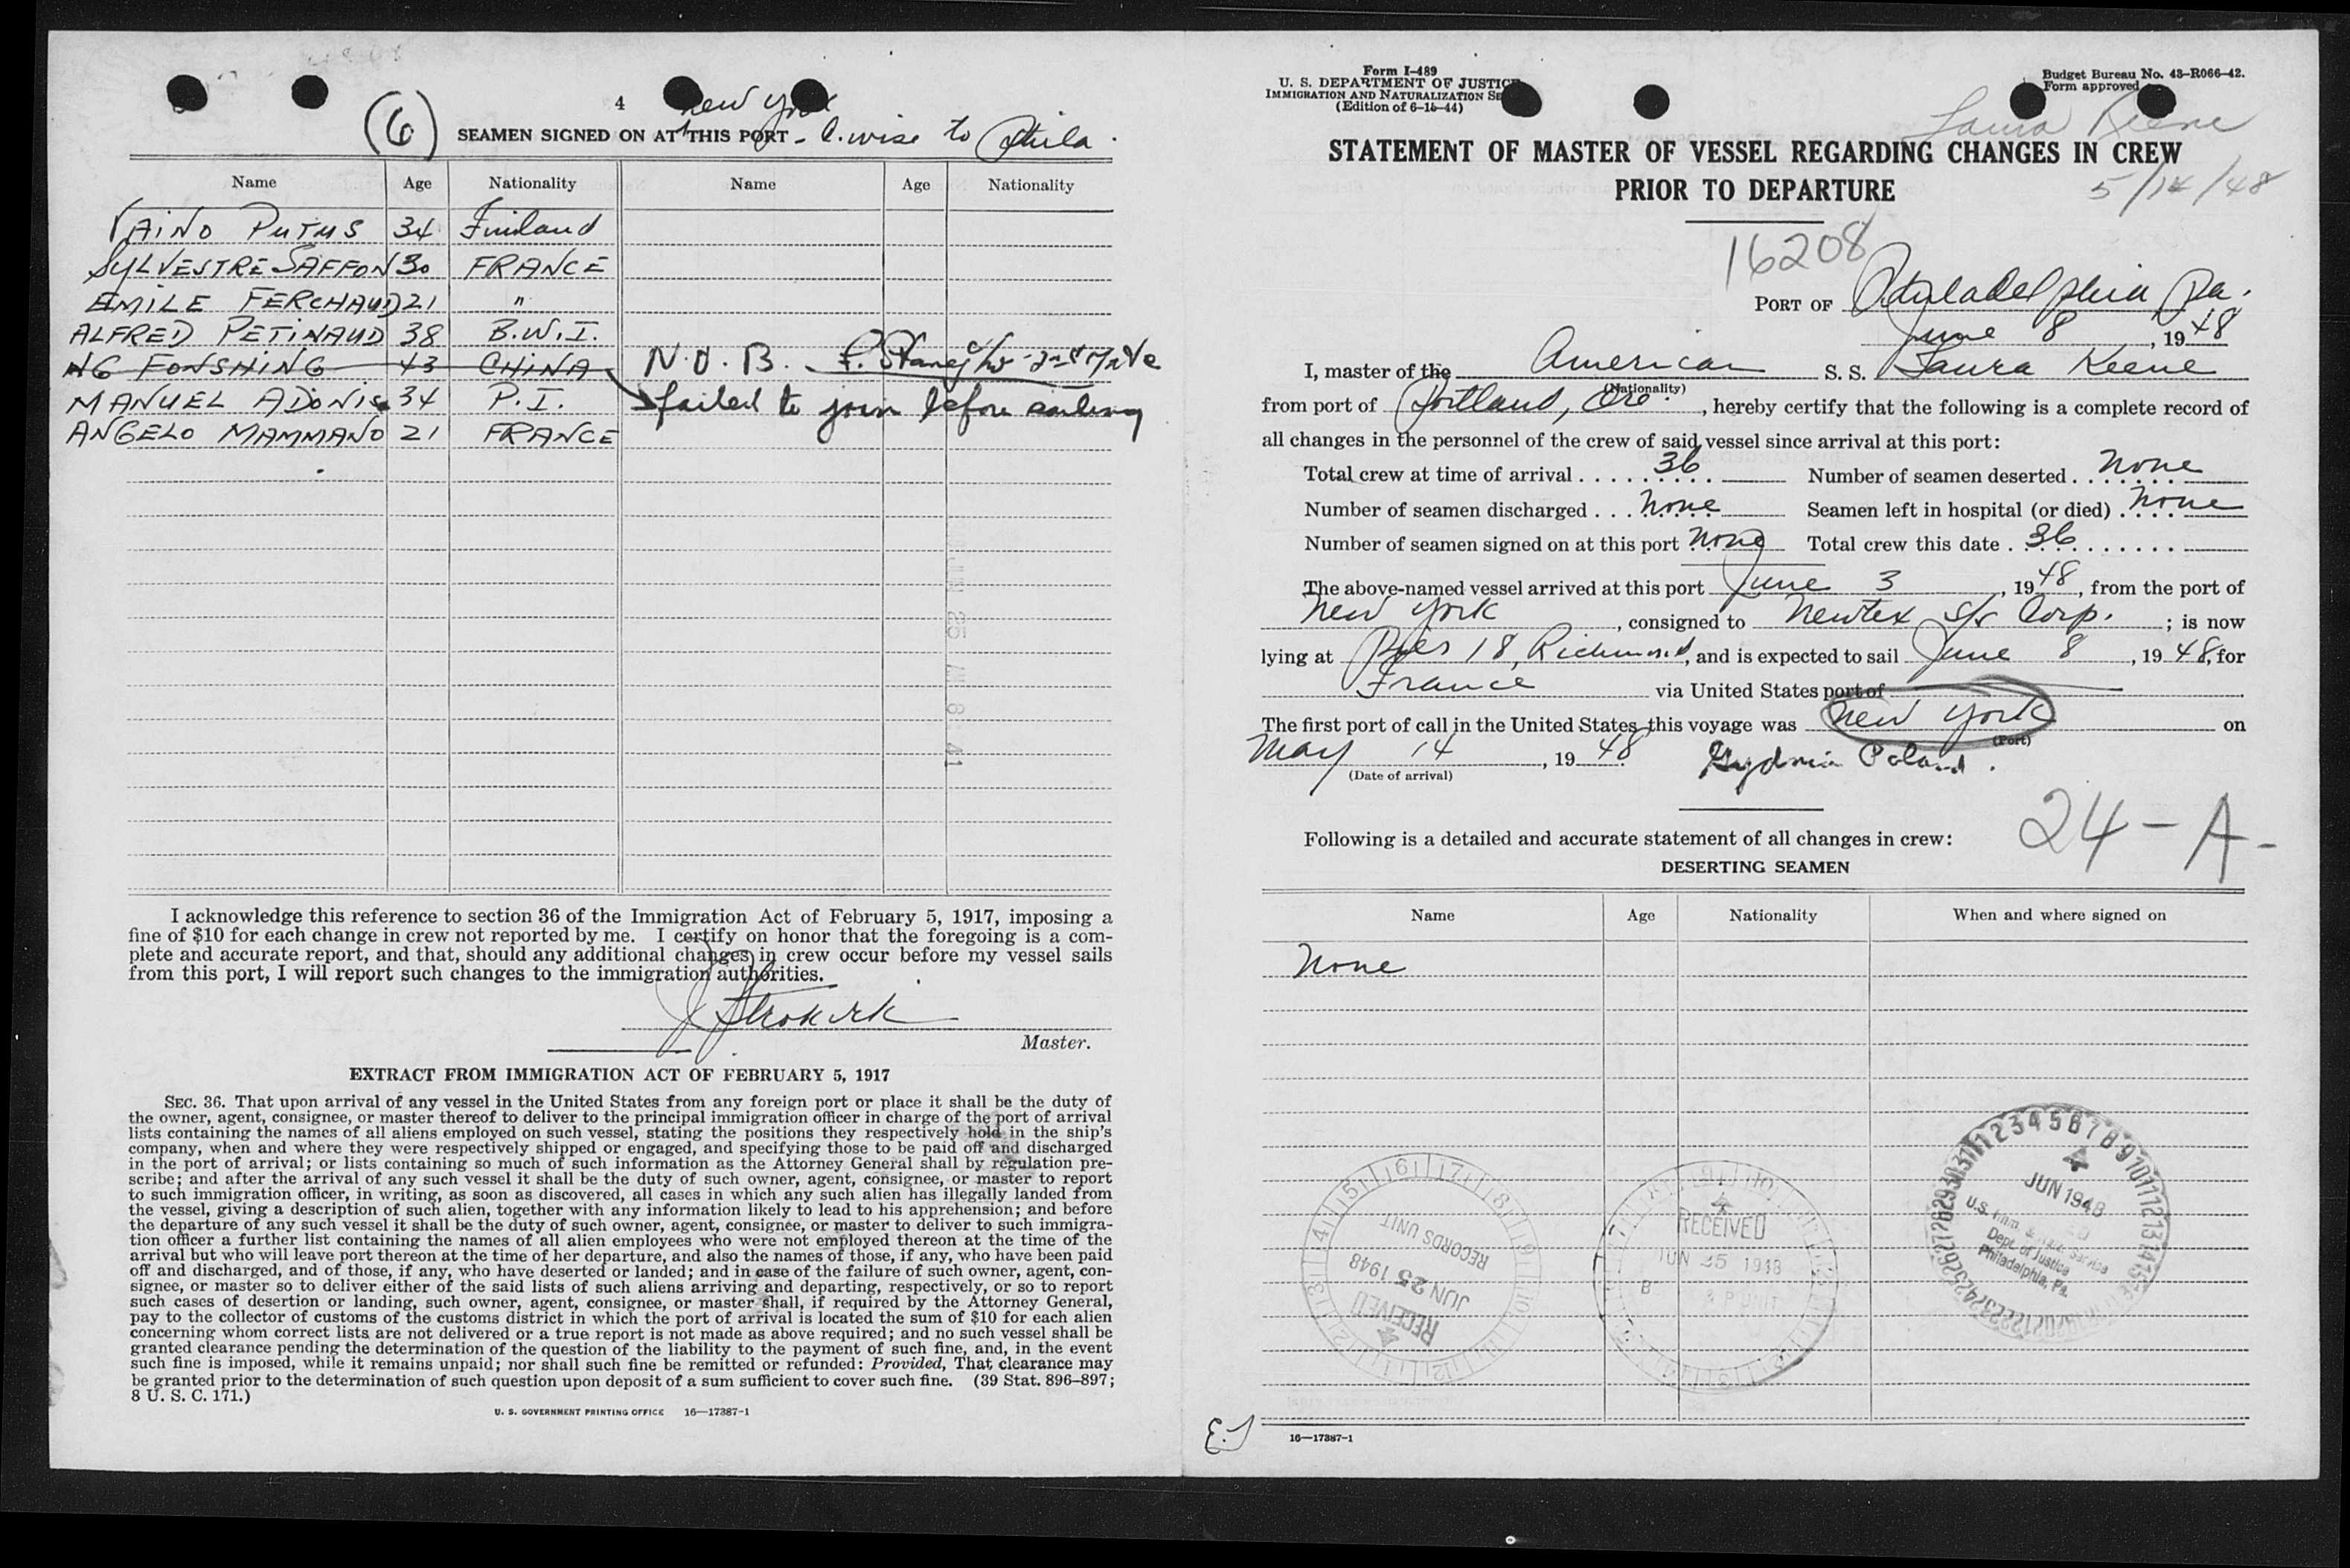 4
(6)
New York
SEAMEN SIGNED ON AT THIS PORT - C. wise to Phila.
Name Age Nationality Name Age Nationality
VAINO PUTUS 34 Finland
SYLVESTRE SAFFON 30 FRANCE
EMILE FERCHAUD 21 "
ALFRED PETINAUD 38 B.W.I.
NG FONSHING 43 CHINA N.O.B.
failed to join before sailing
MANUEL ADONIS 34 P.I.
ANGELO MAMMANO 21 FRANCE
I acknowledge this reference to section 36 of the Immigration Act of February 5, 1917, imposing a
fine of $10 for each change in crew not reported by me. I certify on honor that the foregoing is a com-
plete and accurate report, and that, should any additional changes in crew occur before my vessel sails
from this port, I will report such changes to the immigration authorities.
Master.
EXTRACT FROM IMMIGRATION ACT OF FEBRUARY 5, 1917
SEC. 36. That upon arrival of any vessel in the United States from any foreign port or place it shall be the duty of
the owner, agent, consignee, or master thereof to deliver to the principal immigration officer in charge of the port of arrival
lists containing the names of all aliens employed on such vessel, stating the positions they respectively hold in the ship's
company, when and where they were respectively shipped or engaged, and specifying those to be paid off and discharged
in the port of arrival; or lists containing so much of such information as the Attorney General shall by regulation pre-
scribe; and after the arrival of any such vessel it shall be the duty of such owner, agent, consignee, or master to report
to such immigration officer, in writing, as soon as discovered, all cases in which any such alien has illegally landed from
the vessel, giving a description of such alien, together with any information likely to lead to his apprehension; and before
the departure of any such vessel it shall be the duty of such owner, agent, consignee, or master to deliver to such immigra-
tion officer a further list containing the names of all alien employees who were not employed thereon at the time of the
arrival but who will leave port thereon at the time of her departure, and also the names of those, if any, who have been paid
off and discharged, and of those, if any, who have deserted or landed; and in case of the failure of such owner, agent, con-
signee, or master so to deliver either of the said lists of such aliens arriving and departing, respectively, or so to report
such cases of desertion or landing, such owner, agent, consignee, or master shall, if required by the Attorney General,
pay to the collector of customs of the customs district in which the port of arrival is located the sum of $10 for each alien
concerning whom correct lists are not delivered or a true report is not made as above required; and no such vessel shall be
granted clearance pending the determination of the question of the liability to the payment of such fine, and, in the event
such fine is imposed, while it remains unpaid; nor shall such fine be remitted or refunded: Provided, That clearance may
be granted prior to the determination of such question upon deposit of a sum sufficient to cover such fine. (39 Stat. 896–897;
8 U. S. C. 171.)
U. S. GOVERNMENT PRINTING OFFICE 16—17387-1
Form I-489
U. S. DEPARTMENT OF JUSTICE
IMMIGRATION AND NATURALIZATION SE
(Edition of 6-15-44)
Budget Bureau No. 43-R066-42.
Form approved
Laura Keene
5/14/48
STATEMENT OF MASTER OF VESSEL REGARDING CHANGES IN CREW
PRIOR TO DEPARTURE
16208
PORT OF Philadelphia Pa.
June 8, 1948
I, master of the American S. S. Laura Keene
(Nationality)
from port of Portland, Ore, hereby certify that the following is a complete record of
all changes in the personnel of the crew of said vessel since arrival at this port:
Total crew at time of arrival 36 Number of seamen deserted None
Number of seamen discharged None Seamen left in hospital (or died) None
Number of seamen signed on at this port None Total crew this date 36
The above-named vessel arrived at this port June 3, 1948, from the port of
New York, consigned to Newtex S/S Corp.; is now
lying at Pier 18, Richmond, and is expected to sail June 8, 1948, for
France via United States port of
The first port of call in the United States this voyage was New York on
(Port)
May 14, 1948 Gydnia Poland.
(Date of arrival)
Following is a detailed and accurate statement of all changes in crew:
24-A-
DESERTING SEAMEN
Name Age Nationality When and where signed on
None
RECEIVED
JUN 25 1948
RECORDS UNIT
RECEIVED
JUN 25 1948
JUN 1948
U.S. Imm. & Nat. Service
Dept. of Justice
Philadelphia, Pa.
16—17387-1